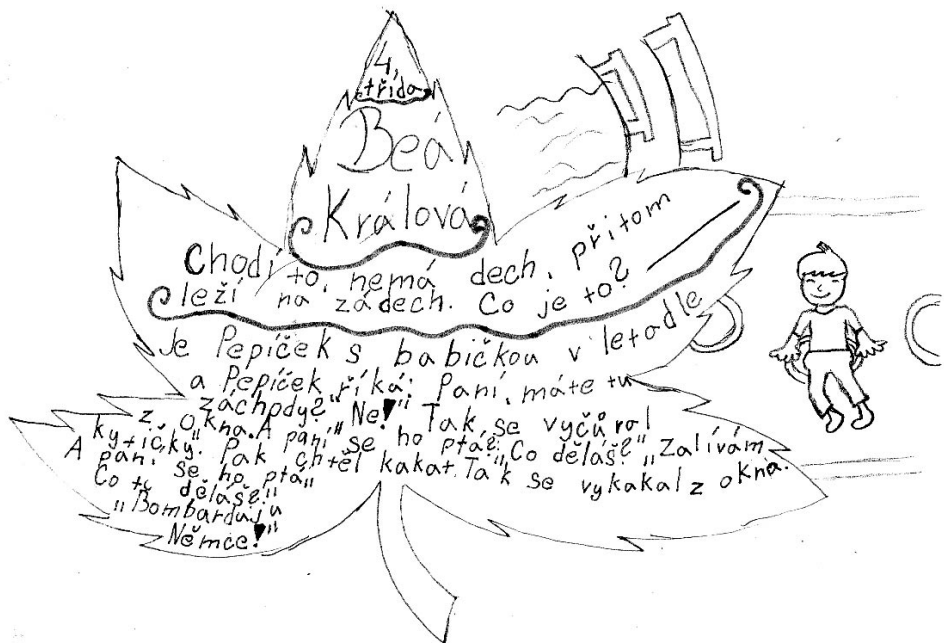 4.
třída
Beá
Králová
Chodí to, nemá dech, přitom
leží na zádech. Co je to?
Je Pepíček s babičkou v letadle
a Pepíček říká: Paní, máte tu
záchody?" "Ne!" Tak se vyčůral
z okna. A paní se ho ptá: "Co děláš?" "Zalívám
kytičky." Pak chtěl kakat. Tak se vykakal z okna.
A paní se ho ptá"
Co tu děláš?"
"Bombarduju
Němce!"